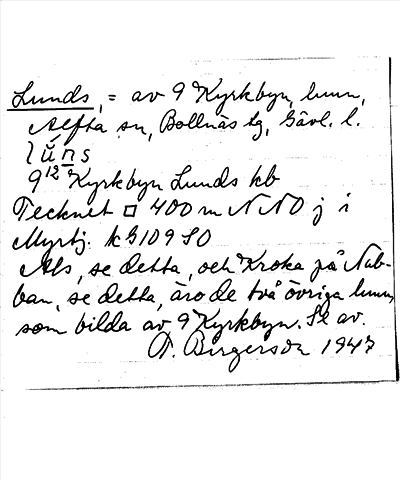 Lunds, = av 9 Kyrkbyn, hmn,
Alfta sn, Bollnäs tg, Gävl. l.
lŭṉs
9¹² Kyrkbyn Lunds kb
Tecknet □ 400 m NNO j i
Myrtj. kG109 SO
Als, se detta, och Kroka på Nab-
ban, se detta, äro de två övriga hmn,
som bilda av 9 Kyrkbyn. Se av.
Birgerson 1947